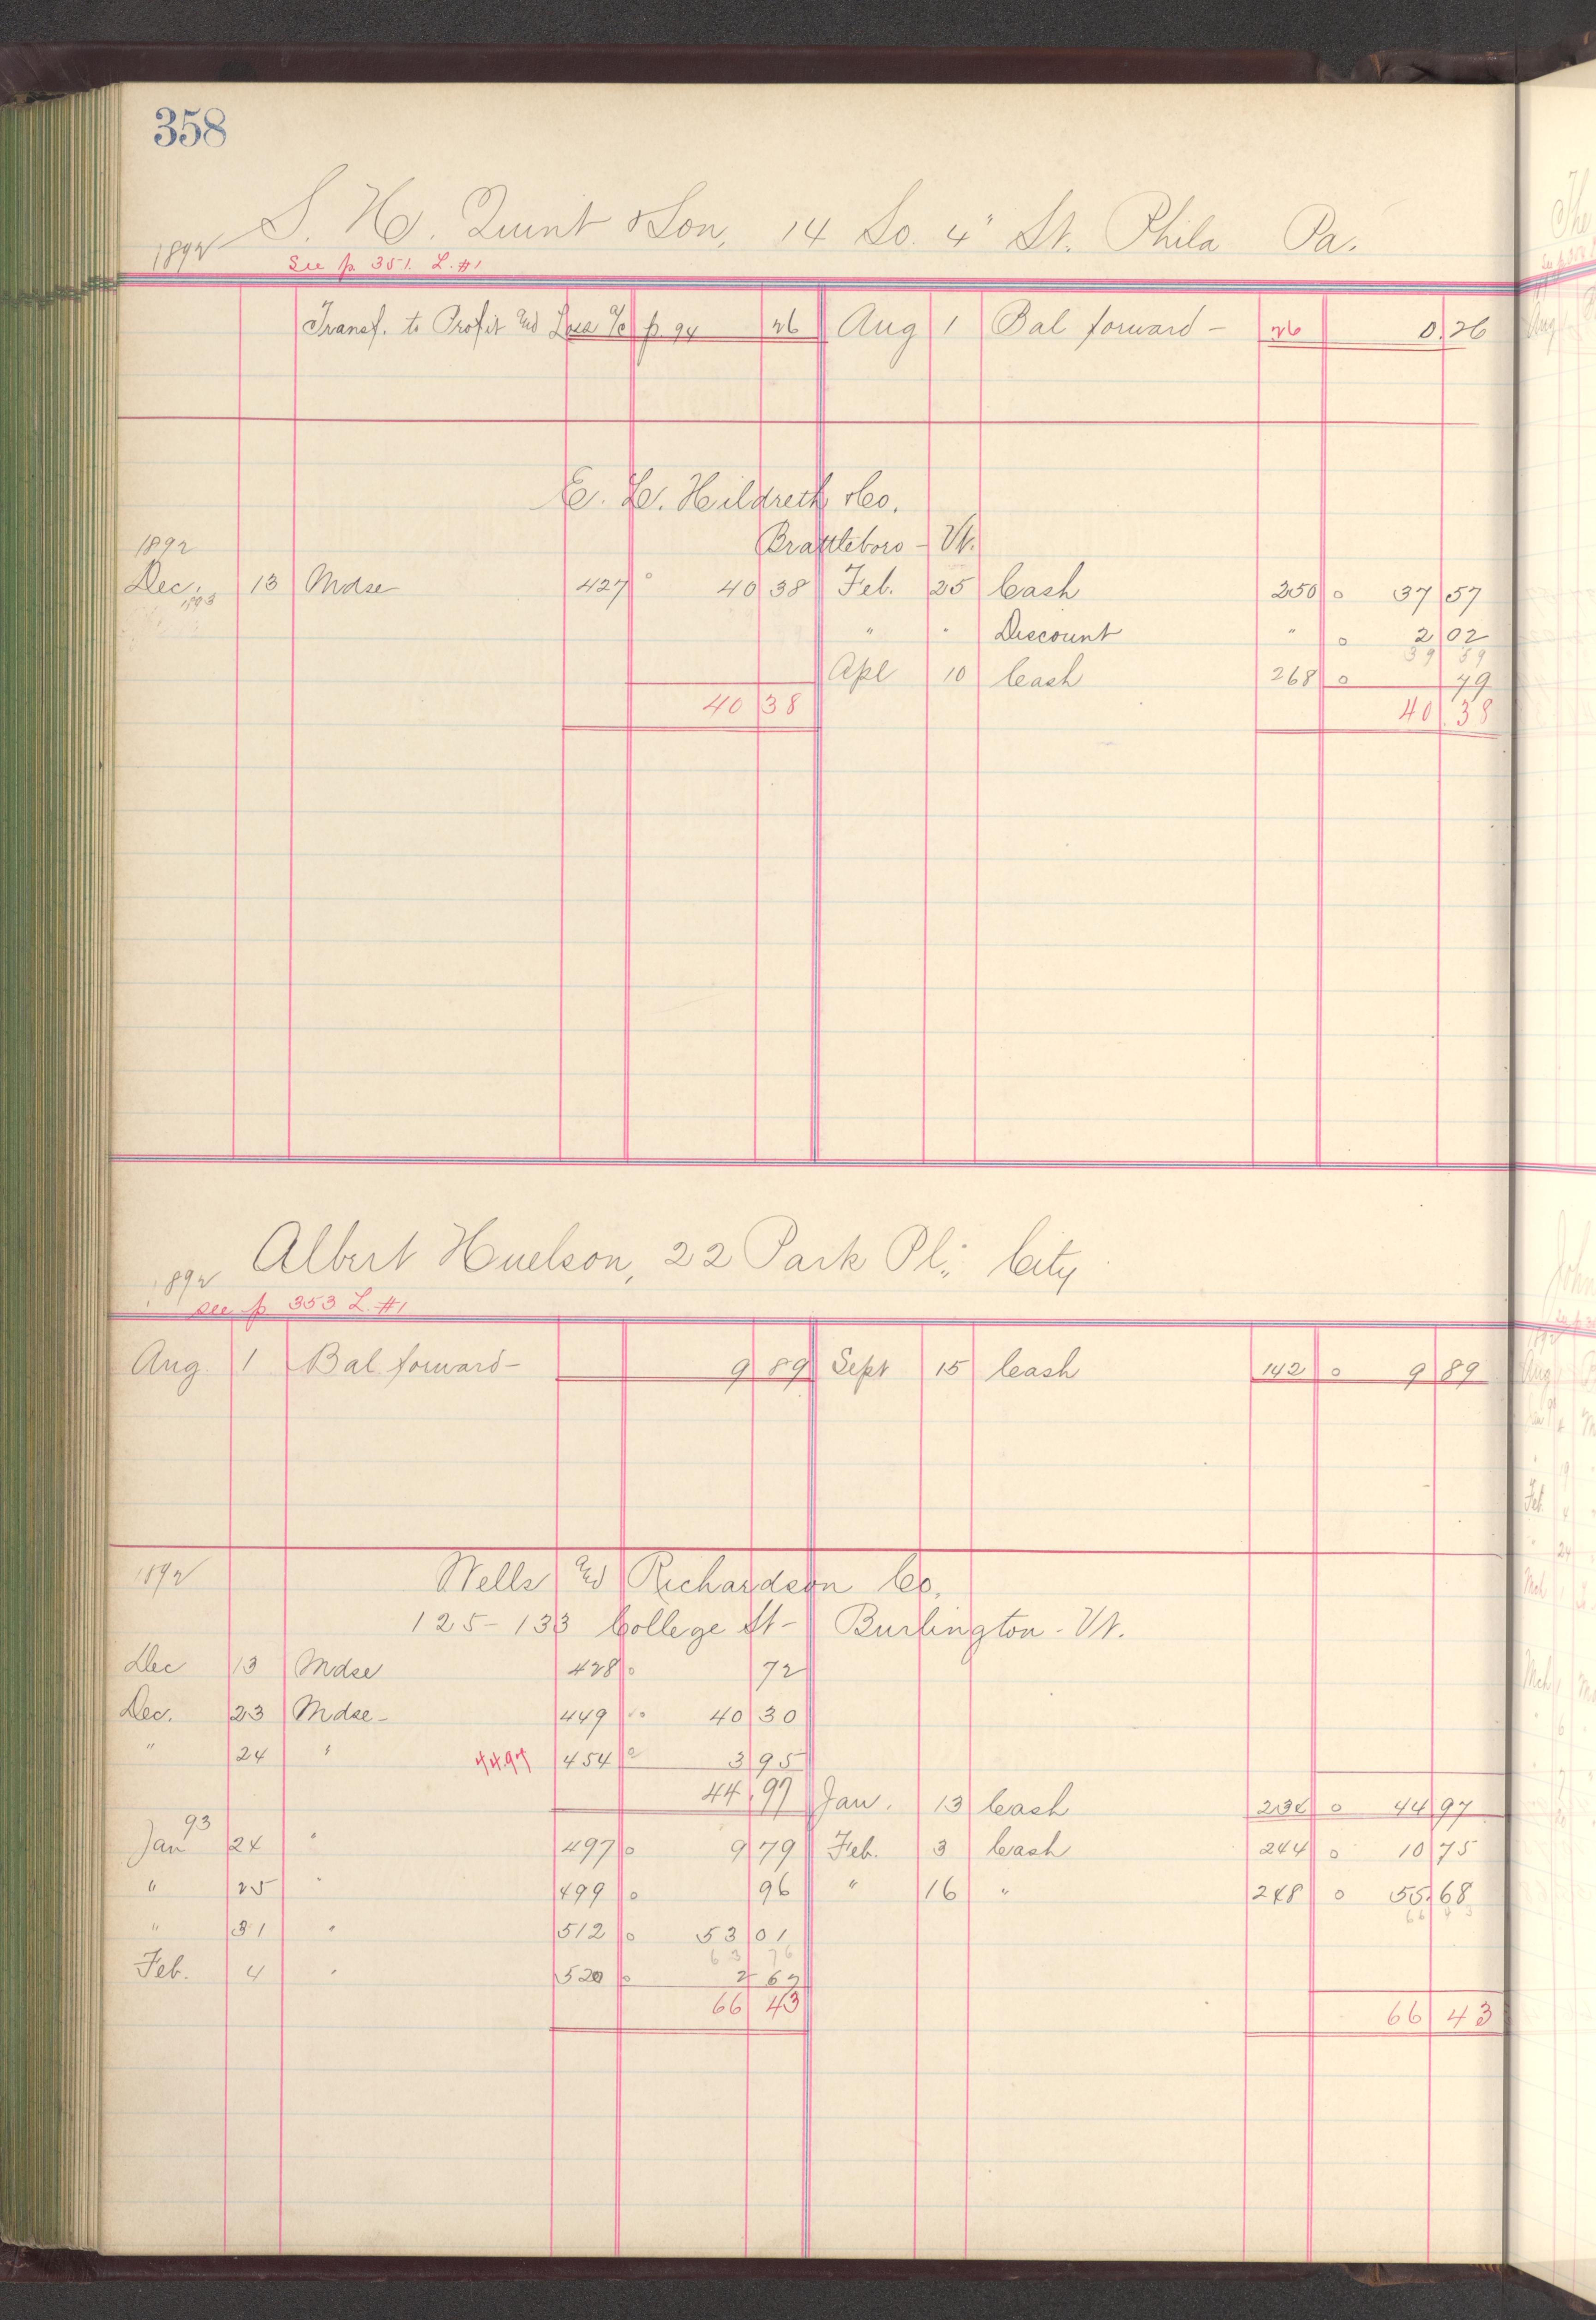 358
S. H. Quint & Son, 14 So. 4" St. Phila Pa.
1892
See p. 351. L. #1
Transf. to Profit and Loss a/c p. 94 26 Aug 1 Bal forward - 26 0.26
E. L. Hildreth & Co.
Brattleboro - Vt.
1892
Dec. 13 Mdse 427 o 40 38 Feb. 25 Cash 250 o 37 57
1893
" " Discount " o 2 02
39 59
Apl 10 Cash 268 o 79
40 38 40 38
Albert Huelson, 22 Park Pl; City
1892
see p 353 L. #1
Aug. 1 Bal forward - 9 89 Sept 15 Cash 142 o 9 89
1892
Wells and Richardson Co.
125-133 College St - Burlington - Vt.
Dec 13 Mdse 428 o 72
Dec. 23 Mdse - 449 o 40 30
" 24 " 44.97 454 o 3 95
44 97 Jan. 13 Cash 232 o 44 97
93
Jan 24 " 497 o 9 79 Feb. 3 Cash 244 o 10 75
" 25 " 499 o 96 " 16 " 248 o 55 68
66 43
" 31 " 512 o 53 01
63 76
Feb. 4 " 520 o 2 67
66 43 66 43